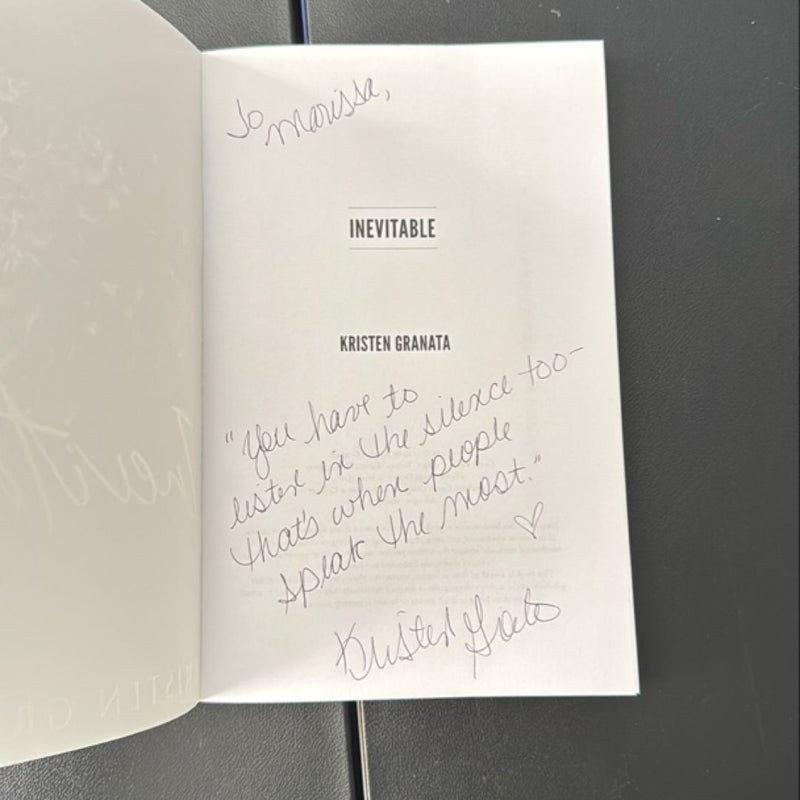 To Marissa,
INEVITABLE
KRISTEN GRANATA
"You have to
listen in the silence too-
that's when people
speak the most."
Kristen